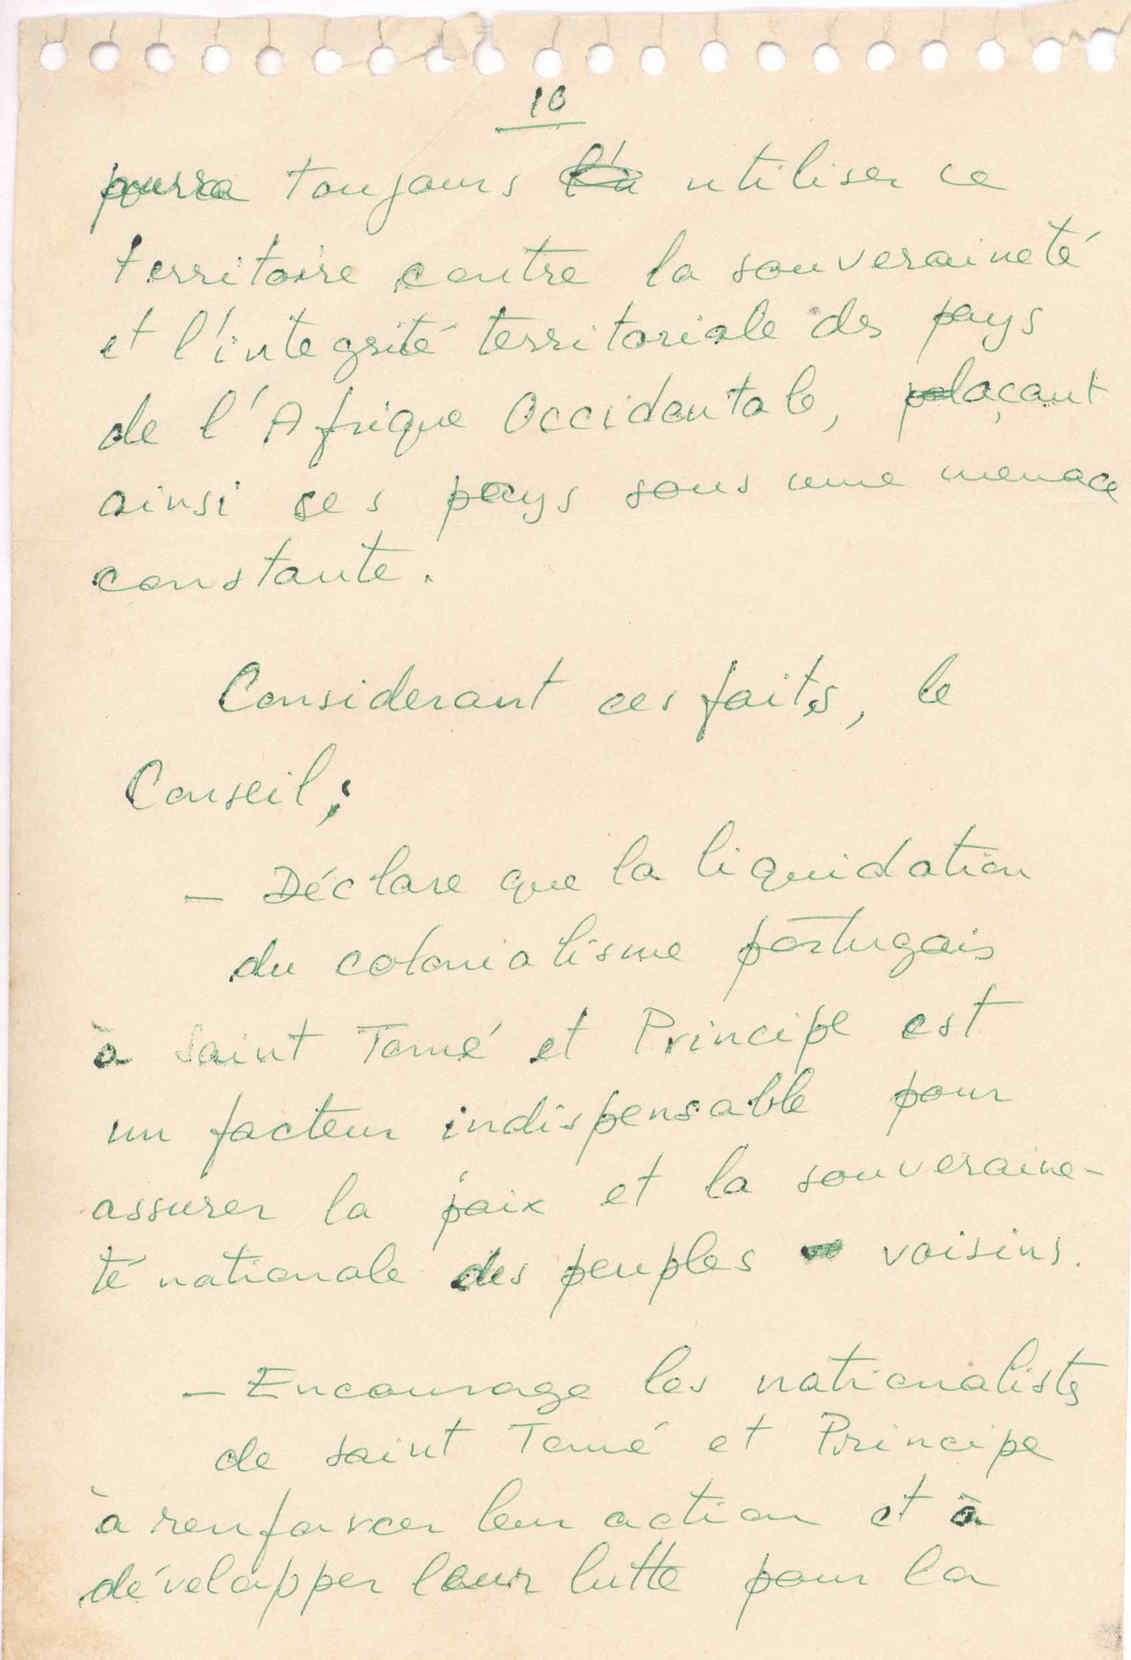 10
pourra toujours utiliser ce
territoire contre la souveraineté
et l'integrité territoriale des pays
de l'Afrique Occidentale, plaçant
ainsi ces pays sous une menace
constante.
Considerant ces faits, le
Conseil:
— Déclare que la liquidation
du colonialisme portugais
à Saint Tomé et Principe est
un facteur indispensable pour
assurer la paix et la souveraine-
té nationale des peuples voisins.
— Encourage les nationalistes
de Saint Tomé et Principe
à renforcer leur action et à
développer leur lutte pour la